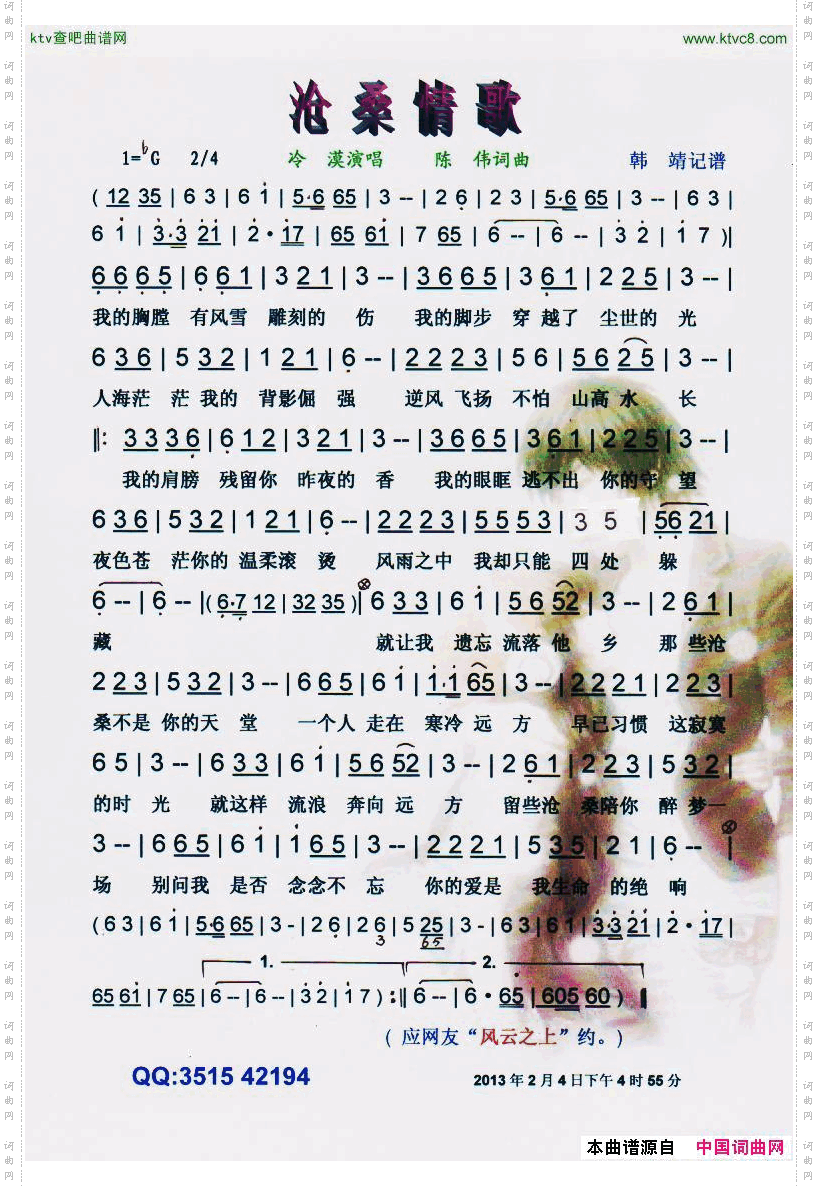 ktv查吧曲谱网 www.ktvc8.com
沧桑情歌
1=♭G 2/4 冷 漠演唱 陈 伟词曲 韩 靖记谱
( 12 35 | 6 3 | 6 1 | 5·6 65 | 3 -- | 2 6 | 2 3 | 5·6 65 | 3 -- | 6 3 |
6 1 | 3·3 21 | 2 · 17 | 65 61 | 7 65 | 6 -- | 6 -- | 3 2 | 1 7 )|
6 6 6 5 | 6 6 1 | 3 2 1 | 3 -- | 3 6 6 5 | 3 6 1 | 2 2 5 | 3 -- |
我的胸膛 有风雪 雕刻的 伤 我的脚步 穿越了 尘世的 光
6 3 6 | 5 3 2 | 1 2 1 | 6 -- | 2 2 2 3 | 5 6 | 5 6 2 5 | 3 -- |
人海茫 茫 我的 背影倔 强 逆风 飞扬 不怕 山高 水 长
‖: 3 3 3 6 | 6 1 2 | 3 2 1 | 3 -- | 3 6 6 5 | 3 6 1 | 2 2 5 | 3 -- |
我的肩膀 残留你 昨夜的 香 我的眼眶 逃不出 你的守 望
6 3 6 | 5 3 2 | 1 2 1 | 6 -- | 2 2 2 3 | 5 5 5 3 | 3 5 | 56 21 |
夜色苍 茫你的 温柔滚 烫 风雨之中 我却只能 四 处 躲
6 -- | 6 -- |( 6·7 12 | 32 35 )| 6 3 3 | 6 1 | 5 6 52 | 3 -- | 2 6 1 |
藏 就让我 遗忘 流落 他 乡 那 些沧
2 2 3 | 5 3 2 | 3 -- | 6 6 5 | 6 1 | 1·1 65 | 3 -- | 2 2 2 1 | 2 2 3 |
桑不是 你的天 堂 一个人 走在 寒冷 远 方 早已习惯 这寂寞
6 5 | 3 -- | 6 3 3 | 6 1 | 5 6 52 | 3 -- | 2 6 1 | 2 2 3 | 5 3 2 |
的时 光 就这样 流浪 奔向 远 方 留些沧 桑陪你 醉 梦一
3 -- | 6 6 5 | 6 1 | 1 6 5 | 3 -- | 2 2 2 1 | 5 3 5 | 2 1 | 6 -- |
场 别问我 是否 念念不 忘 你的爱是 我生命 的绝 响
( 6 3 | 6 1 | 5·6 65 | 3 - | 2 6 | 2 6 | 5 25 | 3 - | 6 3 | 6 1 | 3·3 21 | 2 · 17 |
3 65
1. 2.
65 61 | 7 65 | 6 -- | 6 -- | 3 2 | 1 7 ) :‖ 6 -- | 6 · 65 | 605 60 ) ‖
( 应网友“风云之上”约。)
QQ:3515 42194 2013 年 2 月 4 日下午 4 时 55 分
本曲谱源自 中国词曲网